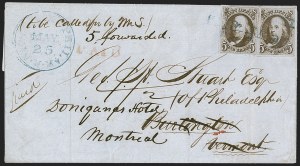 (to be Called for by M S
5 forwarded.
MAY
25
Paid
Geo. H. Stuart Esq
of Philadelphia
Doneganas Hotel
Burlington
Montreal
Vermont
5 5